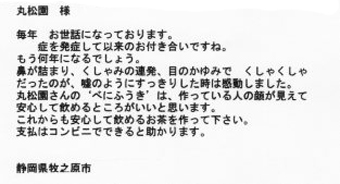 丸松園　様
毎年　お世話になっております。
症を発症して以来のお付き合いですね。
もう何年になるでしょう。
鼻が詰まり、くしゃみの連発、目のかゆみで　くしゃくしゃ
だったのが、嘘のようにすっきりした時は感動しました。
丸松園さんの‘べにふうき’は、作っている人の顔が見えて
安心して飲めるところがいいと思います。
これからも安心して飲めるお茶を作って下さい。
支払はコンビニでできると助かります。
静岡県牧之原市